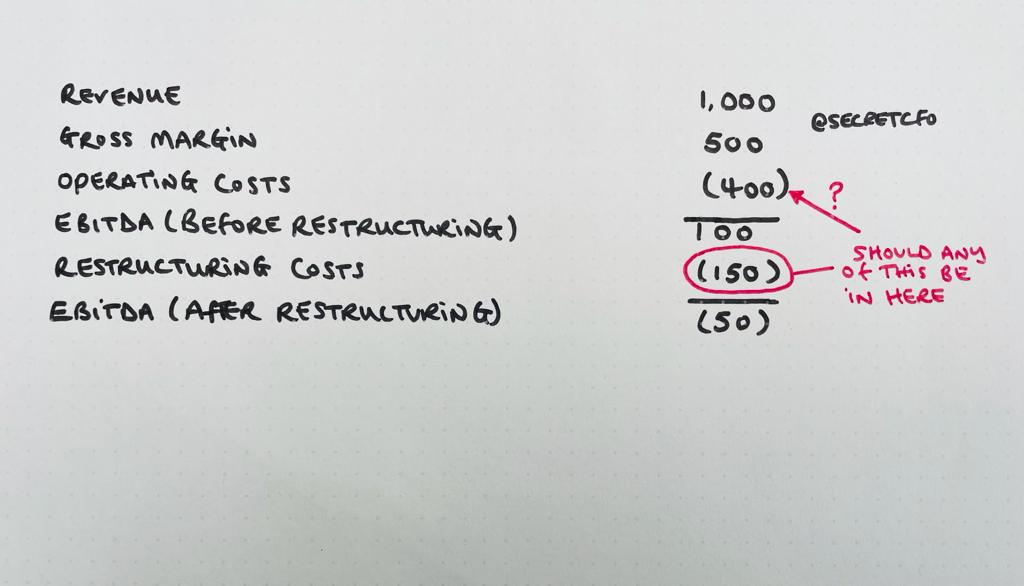 REVENUE 1,000
@SECRETCFO
GROSS MARGIN 500
OPERATING COSTS (400)
?
EBITDA (BEFORE RESTRUCTURING) 100
RESTRUCTURING COSTS (150)
SHOULD ANY
OF THIS BE
IN HERE
EBITDA (AFTER RESTRUCTURING) (50)